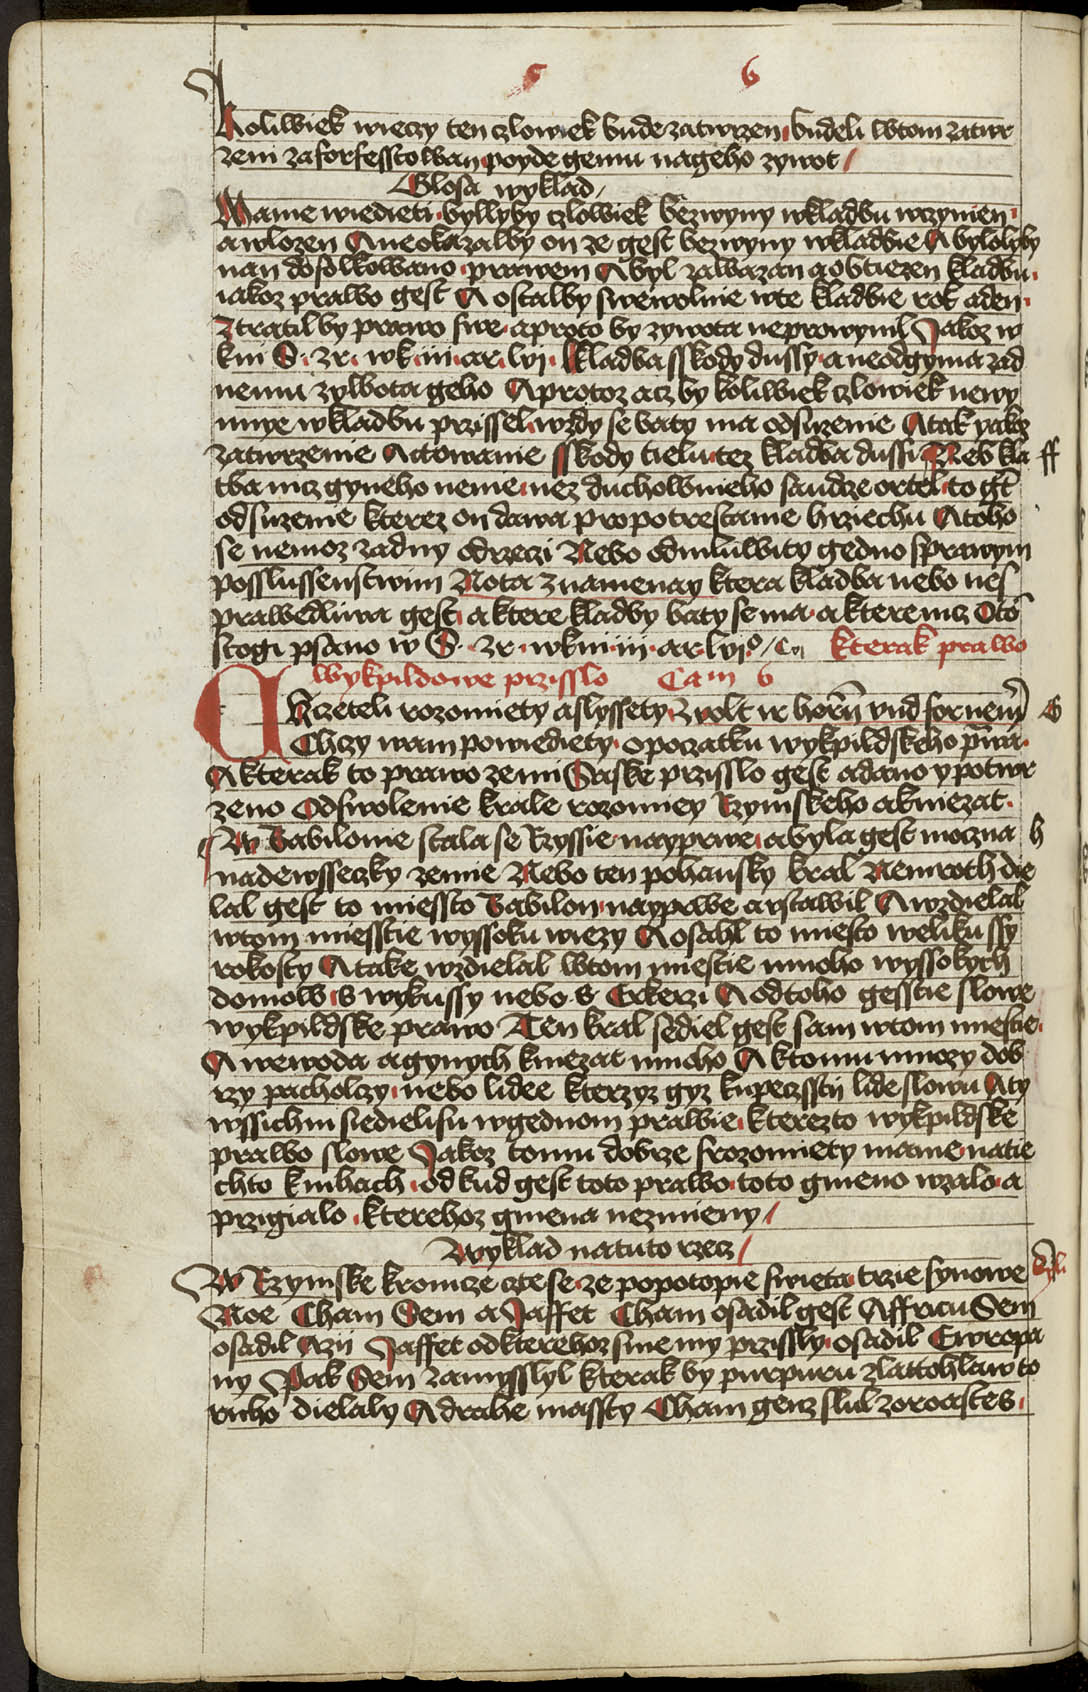 5 6
Koliwiek wieczy ten czlowiek bude zatwrzen budeli wtom zatwr
zeni zaforfessstowan poyde gemu nageho zywot
Glosa wyklad
Mame wiedieti byllyby czlowiek bezwyny wkladbu wczynien
a wlozen A neokazalby on ze gest bezwyny wkladbie A byloliby
nan dosolkowano prawem A byl zawazan a obtiezen kladbu
iakoz prawo gest A ostalby swewolnie wte kladbie rok a den
ztratil by prawo swe a proto by zywota neprowynil Jakoz w
kni S. zr. w k. iii. ar. lvi. kladba sskody dussy a neodgyma zad
nemu zywota geho A protoz acz by koliwiek czlowiek newy
nnye wkladbu przissel wzdy se baty ma odsuzenie A tak yakoz
zatwrzenie A stowanie sskody tielu tez kladba dussi Neb kla
tba nicz gyneho nenie nez duchownieho saudcze ortel to gt
odsuzenie kterez on dawa pro potrestanie hrziechu A toho
se nemoz zadny odrzeczi Nebo odmluwity gedno sprawym
posslussenstwim Nota znamenay ktera kladba nebo nes
prawedliwa gest a ktere kladby baty se ma a ktere nicz Oto
stogi psano w S. zr. w kni iii ar. lvi. kterak prawo
wykpildowe przisslo Cam 6
Chczeteli rozomiety a slyssety Wolt ir horn vnd fornem
Chczy wam powiediety o poczatku wykpildskeho pwa
A kterak to prawo zemi Saske przisslo gest a dano y potwr
zeno Odswolenie krale rozomiey Rzymskeho a kniezat
W Babilonie stala se Rzyssie nayprwe a byla gest moczna
nade wsseczky zemie Nebo ten pohansky kral Nemroth die
lal gest to miessto Babilon nayprwe a wstawil A wzdielal
wtom miesstie wyssoku wiezy A osahl to miesto weliku ssy
rokosty A take wzdielal wtom miestie mnoho wyssokych
domow s wykussy nebo s Erkerzi A odtoho gesstie slowe
wykpildske prawo Ten kral sediel gest sam wtom miestie
A wewoda a gynych kniezat mnoho A ktomu mnozy dob
rzy pacholczy nebo lidee kterzyz gyz kupeczssty lide slowu A ty
wssichni siedieli su wgednom prawie kterezto wykpildske
prawo slowe Jakoz tomu dobrze srozomiety mame natie
chto knihach odkud gest toto prawo toto gmeno wzalo a
przigialo kterehoz gmena nezmieny
Wyklad natuto rzecz
W Rzymske kronicze czte se ze po potopie swieta trzie synowe
Noe Cham Sem a Jaffet Cham osadil gest Affricu Sem
osadil Azii Jaffet odkterehoz sme my przissly osadil Ewropa
ny Pak Sem zamysslyl kterak by purpuru zlattohlaw to
rucho dielaly A drahe massty Cham genz slul zoroastes